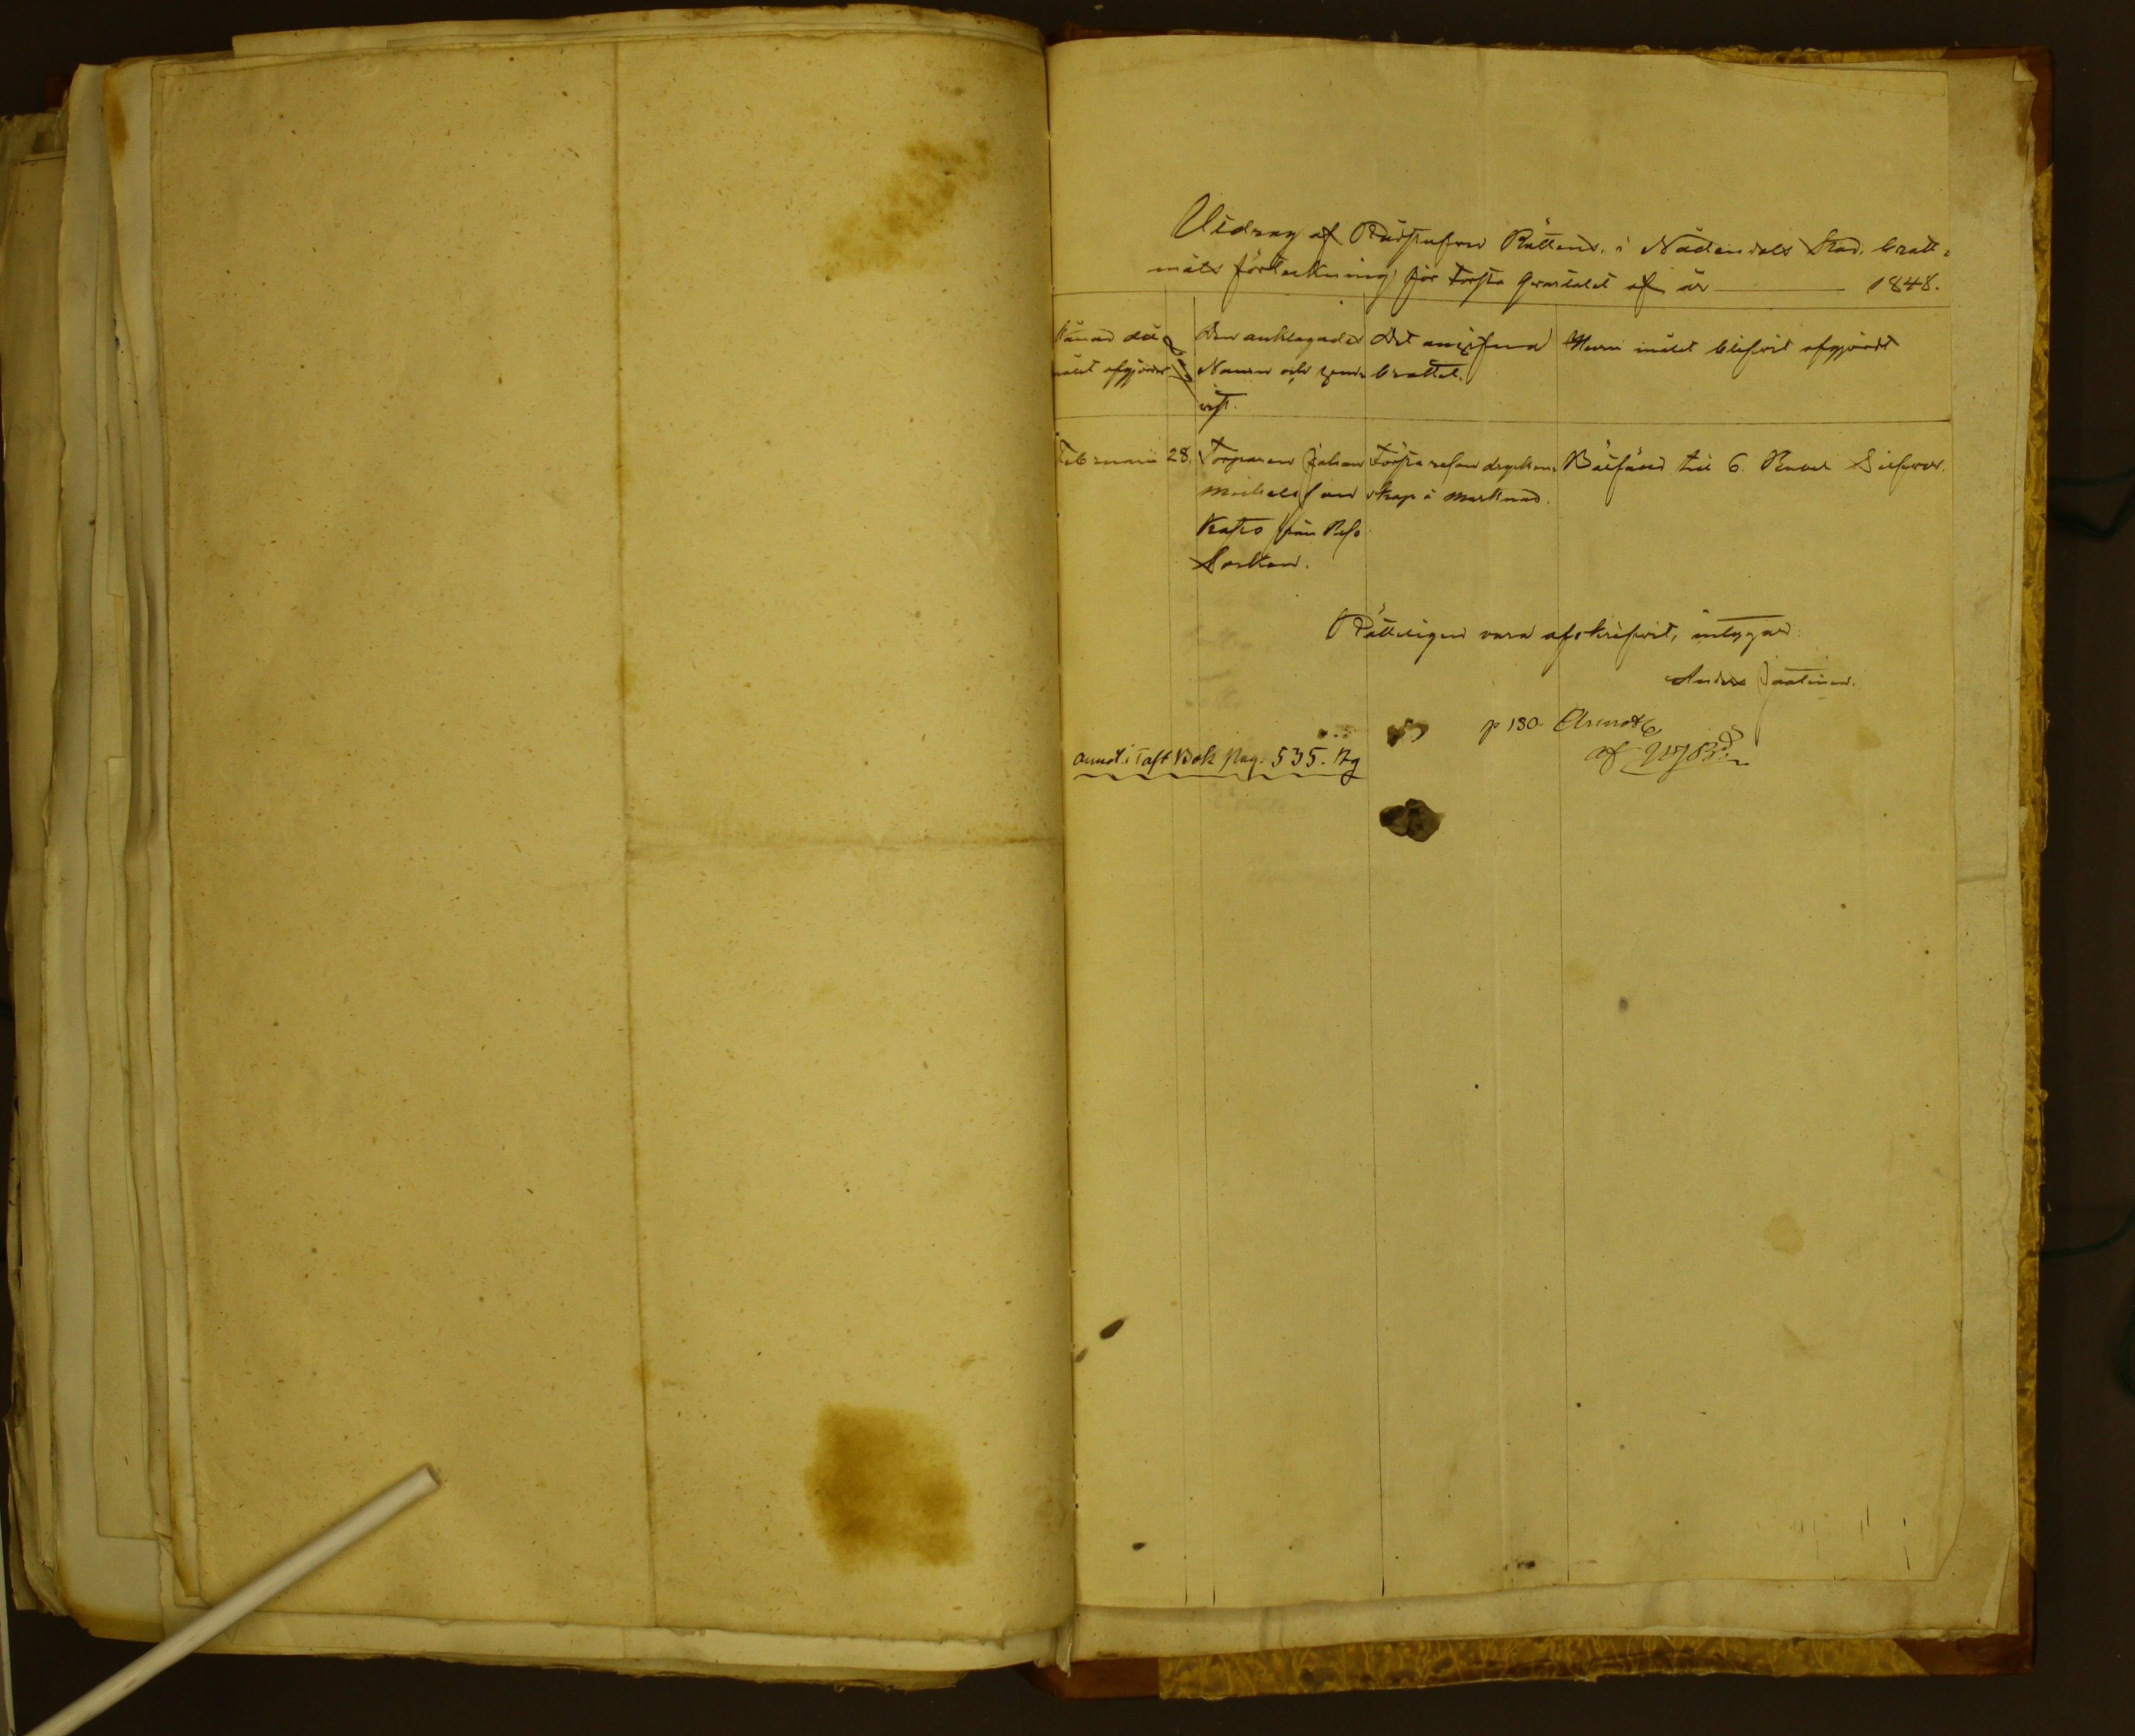 Utdrag af Rådstufvu Rättens, i Nådendals Stad, brott-
måls förteckning för första qvartalet af år 1848.
Månad då målet afgjordes
Den anklagades Namn och hemvist.
Det angifna brottet.
Huru målet blifvit afgjordt
Februarii 28.
Torparen Johan Michelsson Katro från Reso Socken.
Första resan dryckenskap å marknad.
Bötfäld til 6. Rubel Silfver.
Rätteligen vara afskrifvit, intygar:
Anders
p 130
af
annot. i Taft Bok pag. 535.